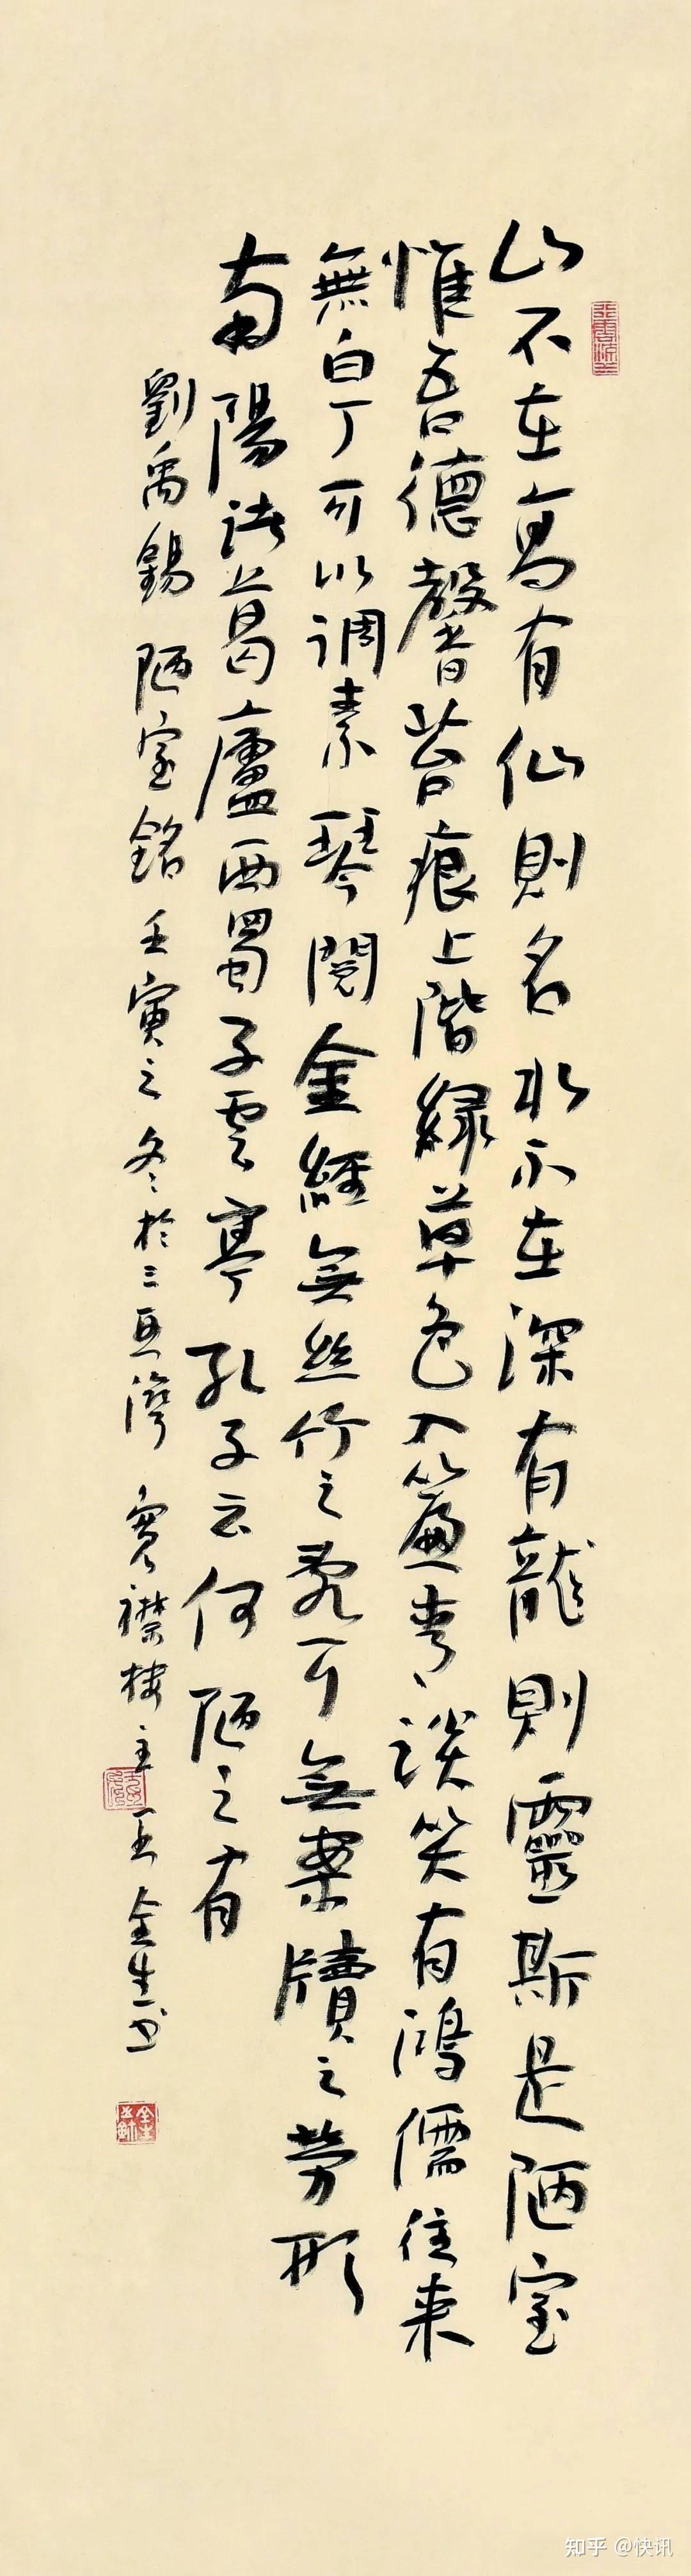 山不在高有仙則名水不在深有龍則靈斯是陋室
惟吾德馨苔痕上階緑草色入簾青談笑有鴻儒往来
無白丁可以调素琴閲金經無丝竹之乱耳無案牘之劳形
南陽诸葛廬西蜀子雲亭孔子云何陋之有
劉禹錫陋室銘壬寅之冬於三亞灣寬襟楼主王金生书
知乎 @快讯